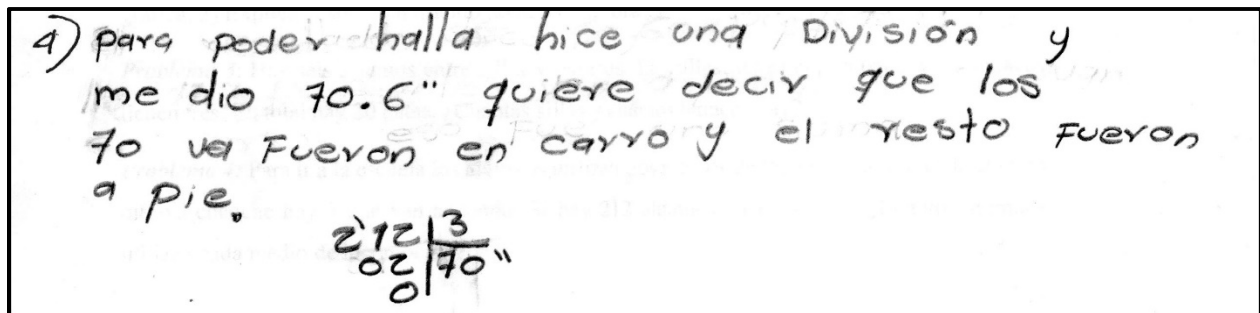 4) para poder halla hice una División y
me dio 70.6" quiere decir que los
70 va Fueron en carro y el resto Fueron
a pie.
212 | 3
02 | 70"
0